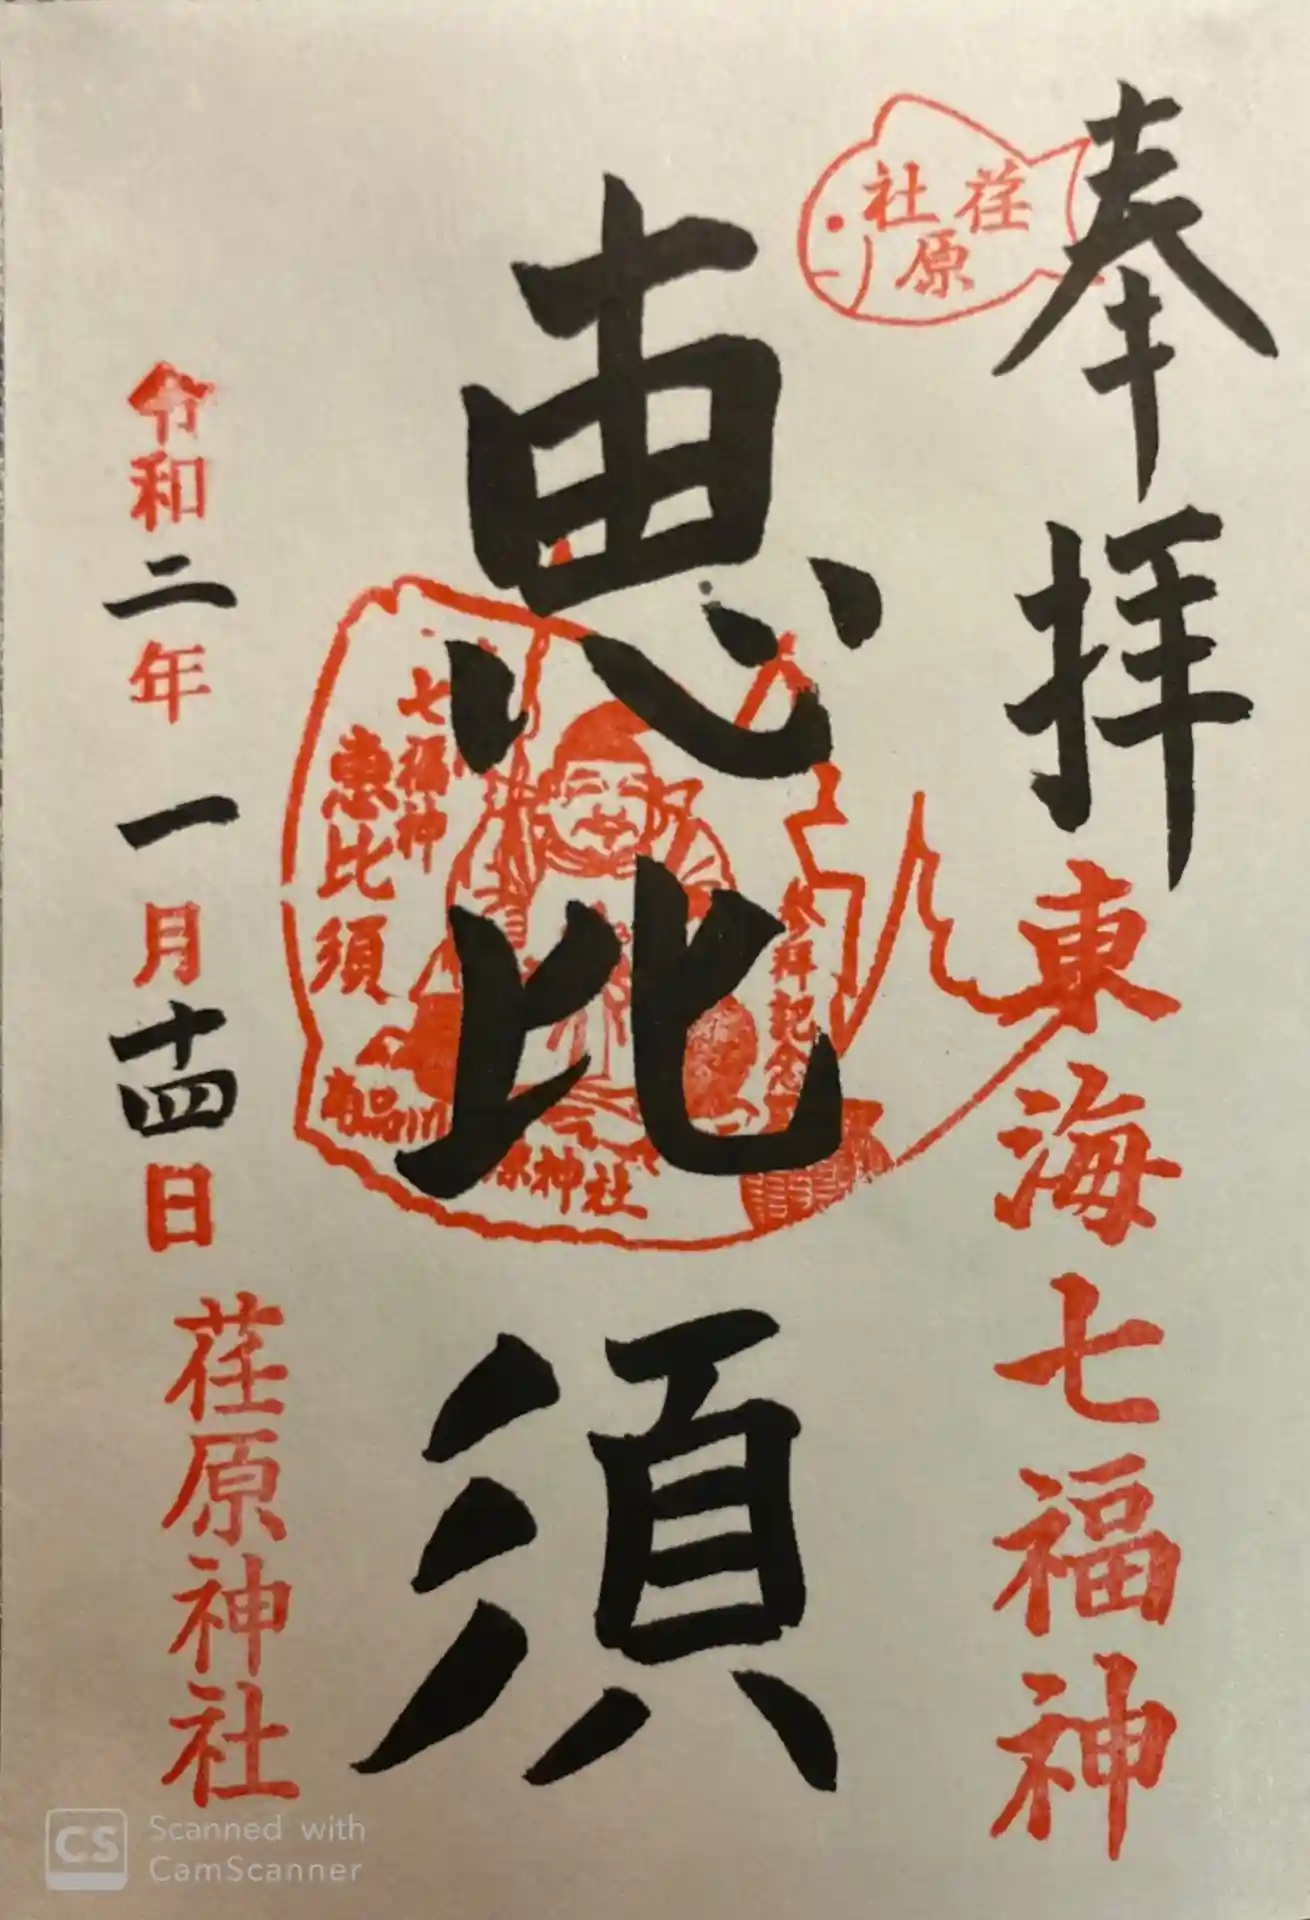 奉拝
東海七福神
荏原社
恵比須
七福神
恵比須
参拝記念
南品川
原神社
令和二年一月十四日
荏原神社
CS
Scanned with
CamScanner